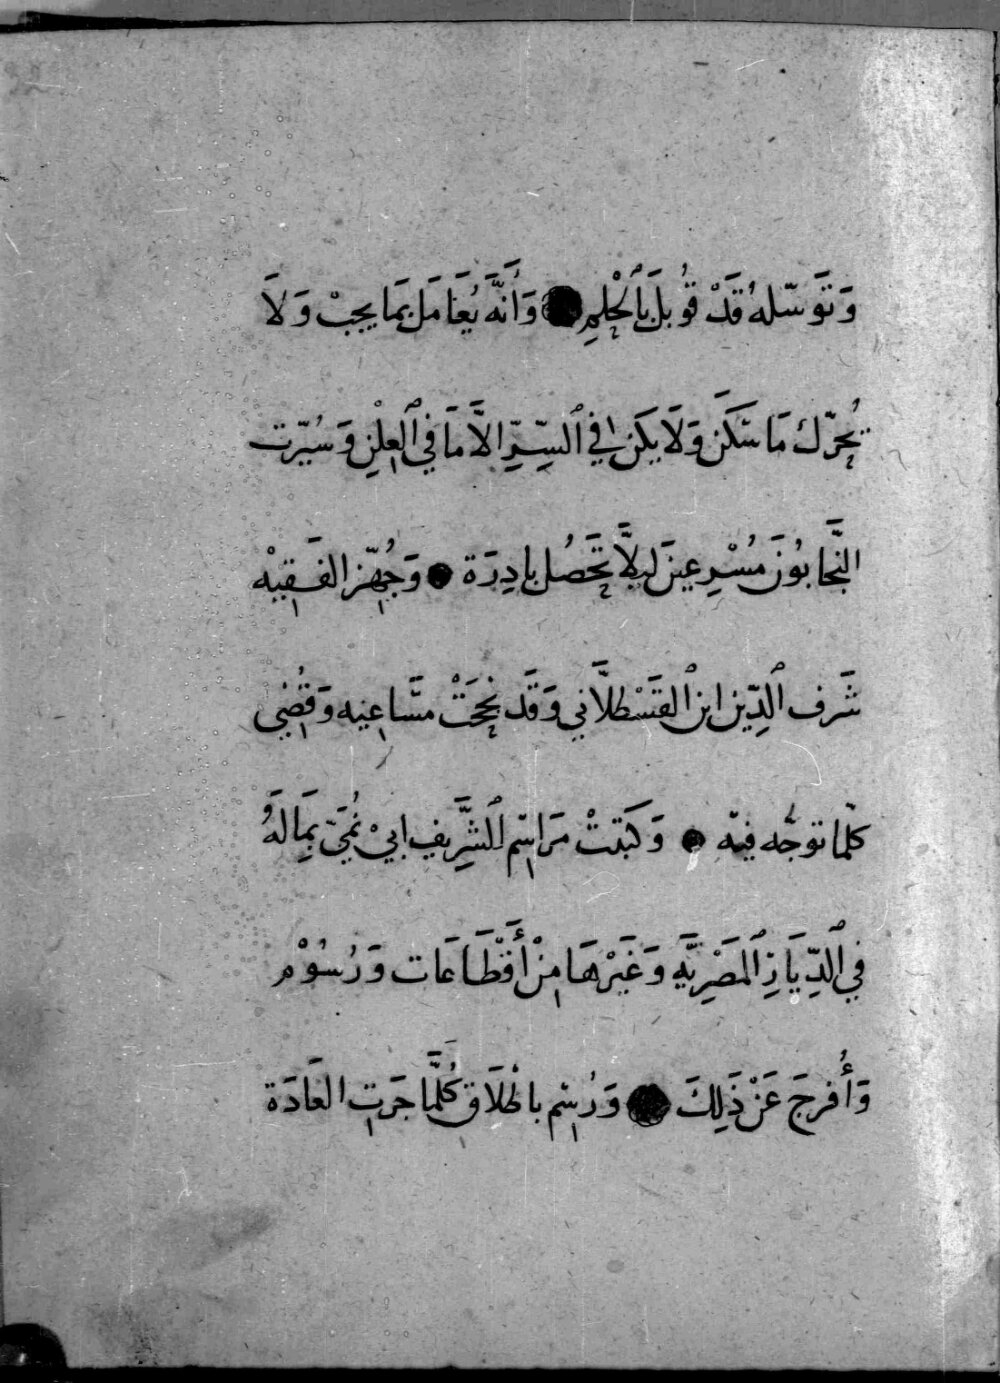 وَتَوَسّله قَدْ قُوبلَ بِٱلْحِلْمِ ● وَأَنَّهُ يُعَامَل بِمَا يجبْ وَلَا
يُحرّك مَا سَكَنَ وَلَا يكَن في ٱلسِّرِّ الاَّ مَا في ٱلْعلْنِ وَسُيّرت
النَّجّابُونَ مُسْرِعينَ ليلاَّ تَحَصُل بادِرَة ● وَجُهّز الفَقِيْه
شَرَف ٱلدِّين ابن ٱلقَسْطلاَّني وَقَد نجحَتْ مسَاعِيه وَقُضِي
كلّما توجّه فيه ● وَكتبَتْ مَرَاسِم ٱلشَّرِيفِ ابيْ نُمَيّ بِمَا لَهُ
في ٱلدِّيَارِ ٱلمصْرِيَّهِ وَغَيْرهَا مِنْ أَقْطَاعَات وَرُسُوْم
وَأُفرجَ عَنْ ذَلِكَ ● وَرُسِم باطْلَاقِ كُلَّمَا جرَتِ العَادَة